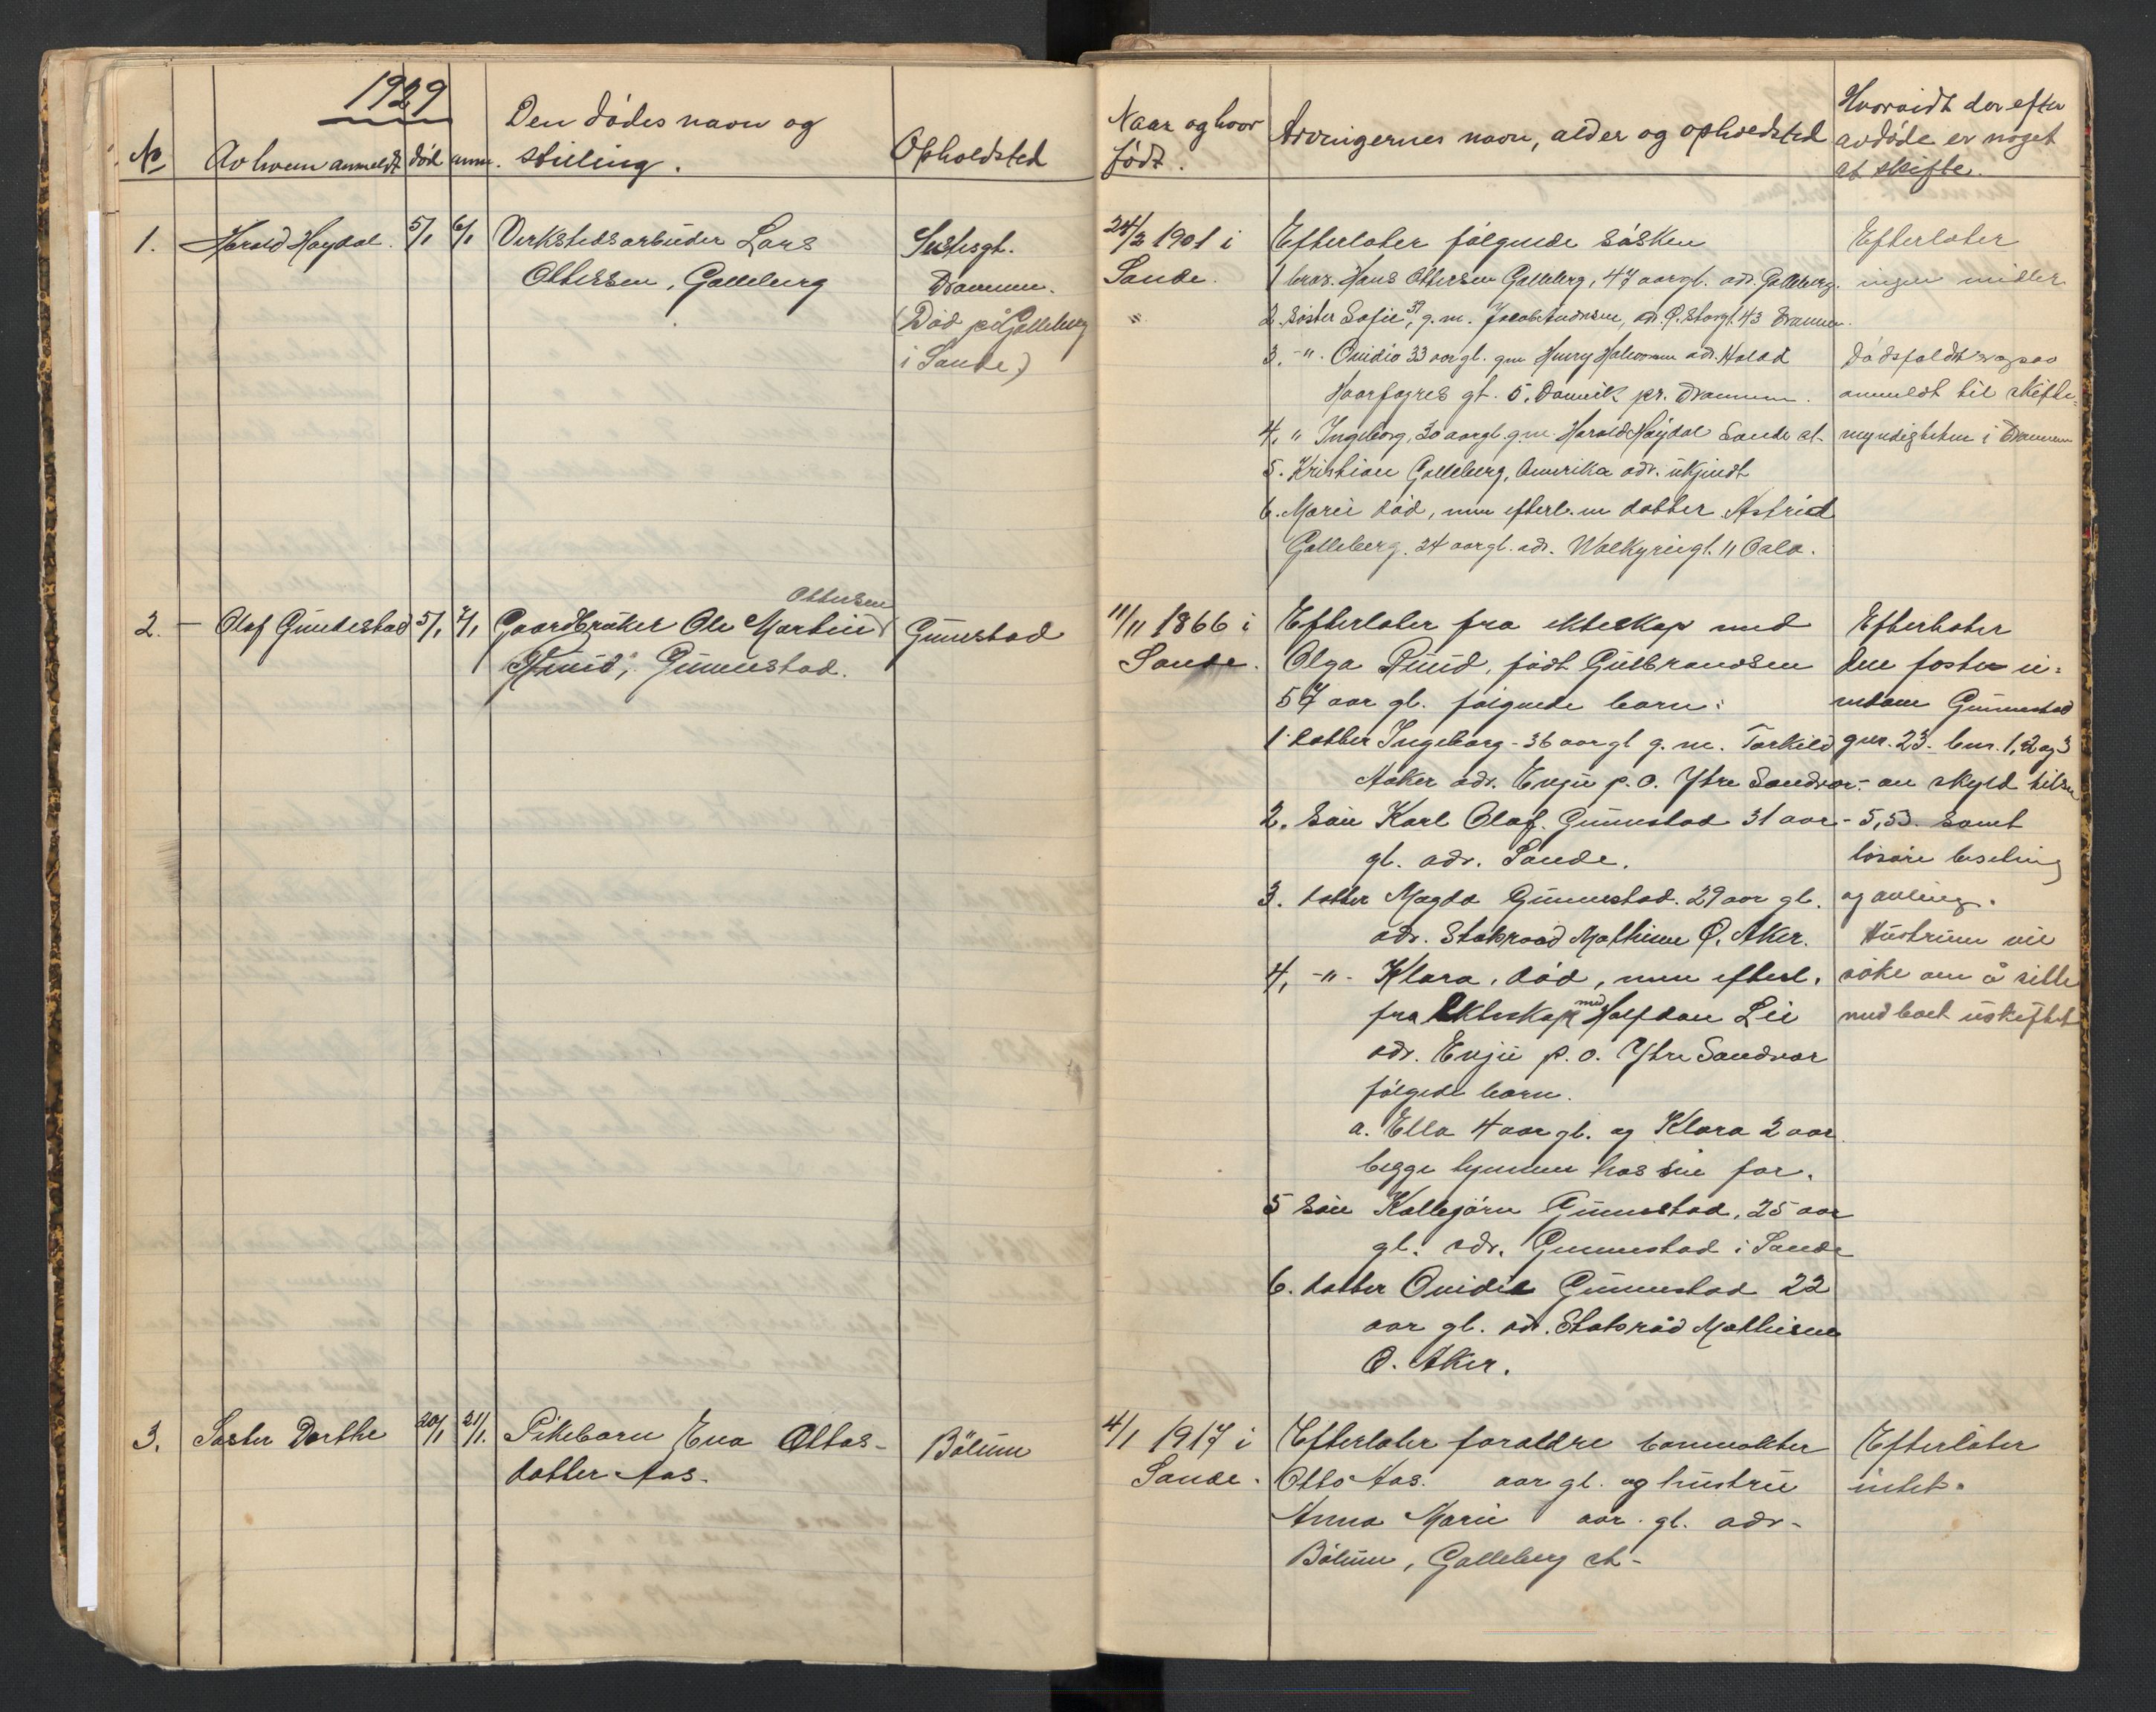 1929
No
Av hvem anmeldt
død
anm.
Den dødes navn og
stilling.
Opholdsted
Naar og hvor
født.
Arvingernes navn, alder og opholdsted
Hvorvidt der efter
avdøde er noget
at skifte.
1.
Harald Høydal.
5/1
6/1
Verkstedsarbeider Lars
Ottersen, Galleberg
Drammen.
(Død på Galleberg
i Sande)
24/2 1901 i
Sande.
Efterlater følgende søsken
1 bror. Hans Ottersen Galleberg, 47 aar gl. adr. Galleberg.
2. Søster Sofie, 37, g.m. Jacob Andersen, adr. Ø. Storgt. 43 Drammen.
3. -"- Ovidia 33 aar gl. gm Henry Halvorsen adr. Harald
Haarfagres gt. 5, Danvik pr. Drammen.
4. " Ingeborg, 30 aar gl. g.m. Harald Høydal Sande st-
5. Kristian Galleberg, Amerika adr. ukjendt
6. Marie død, men efterl. en datter Astrid
Galleberg. 24 aar gl. adr. Walkyriegt. 11 Oslo.
Efterlater
ingen midler
Dødsfaldet er ogsaa
anmeldt til skifte-
myndigheten i Drammen
2.
Olaf Gunnestad
5/1
7/1
Ottersen
Gaardbruker Ole Martin
Ruud, Gunnestad.
Gunnestad
11/11 1866 i
Sande.
Efterlater fra ekteskap med
Olga Ruud, født Gulbrandsen
57 aar gl. følgende barn:
1 datter Ingeborg - 36 aar gl g. m. Torkild
Aaker adr. Evju p.o. Ytre Sandsvær.
2. Søn Karl Olaf Gunnestad 31 aar
gl. adr. Sande.
3. datter Magda Gunnestad. 29 aar gl.
adr. Statsraad Mathisen Ø. Aker.
4. -"- Klara, død, men efterl.
fra Ekteskap med Halfdan Lie
adr. Evju p.o. Ytre Sandsvær
følgende barn.
a. Ella 4 aar gl. og Klara 2 aar
begge hjemme hos sin far.
5 Søn Kallejørn Gunnestad, 25 aar
gl. adr. Gunnestad i Sande
6. datter Ovidie Gunnestad 22
aar gl. adr. Statsråd Mathisen
Ø. Aker.
Efterlater
den faste ei-
endom Gunnestad
gnr. 23. bnr. 1, 2 og 3
av skyld tils.
5,53. samt
løsøre besetning
og avling.
Hustruen vil
søke om å sitte
med boet uskiftet
3.
Søster Dorthe
20/1
21/1.
Pikebarn Eva Ottos-
datter Aas.
Bølum
4/1 1917 i
Sande.
Efterlater foraldre banevokter
Otto Aas. aar gl. og hustru
Anna Marie aar gl. adr-
Bølum, Galleberg st-
Efterlater
intet.